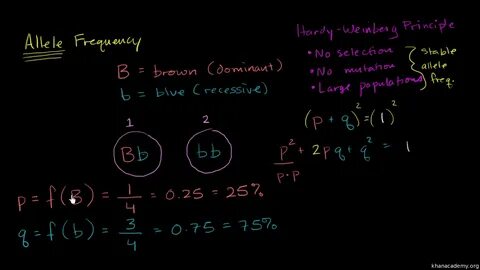 Allele Frequency
B = brown (dominant)
b = blue (recessive)
1 2
Bb bb
p = f(B) = 1/4 = 0.25 = 25%
q = f(b) = 3/4 = 0.75 = 75%
Hardy-Weinberg Principle
• No selection
• No mutation
• Large populations
stable
allele
freq.
(p + q)² = (1)²
p² + 2pq + q² = 1
p·p
khanacademy.org